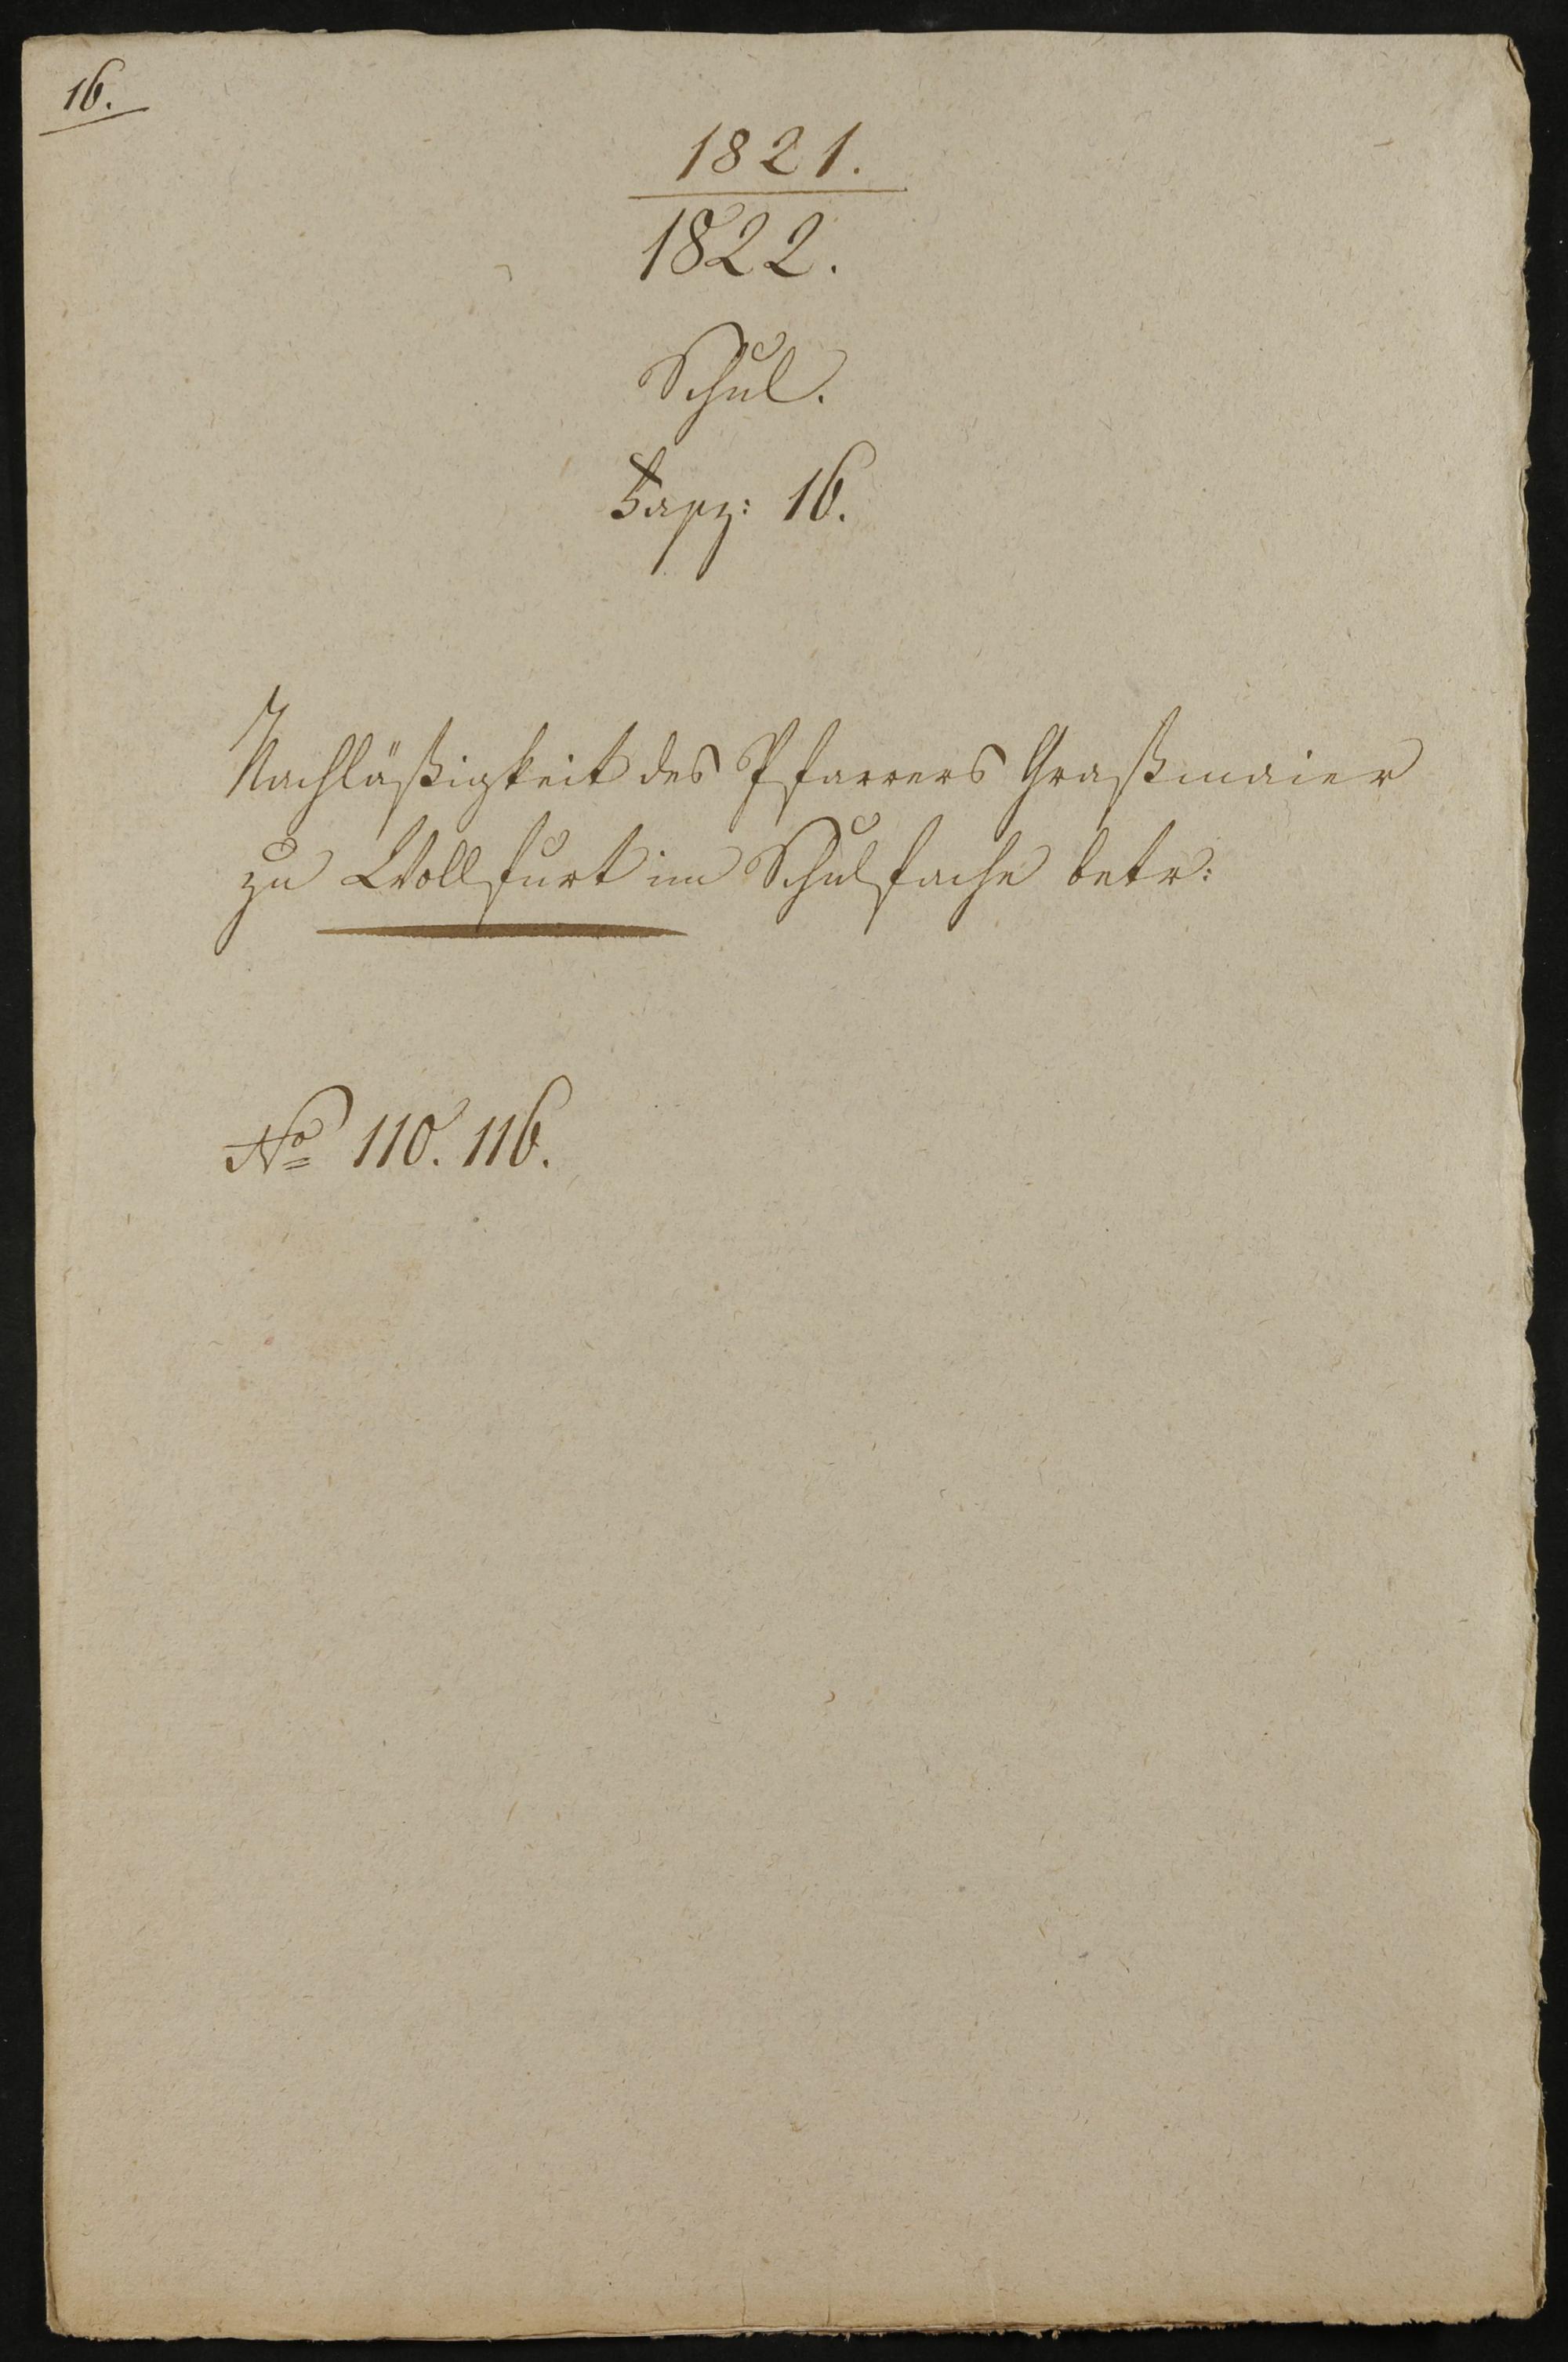 16.
1821.
1822.
Schul.
Fasz: 16.
Nachläßigkeit des Pfarrers Graßmaier
zu Wollfurt im Schulfache betr:
No 110. 116.